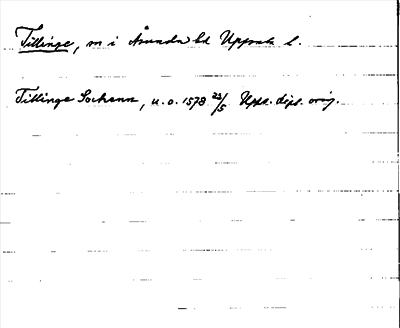 Tillinge, sn i Åsunda hd Uppsala l.
Tillinge Sochenn, u.o. 1578 23/5 Upps. dipl. orig.